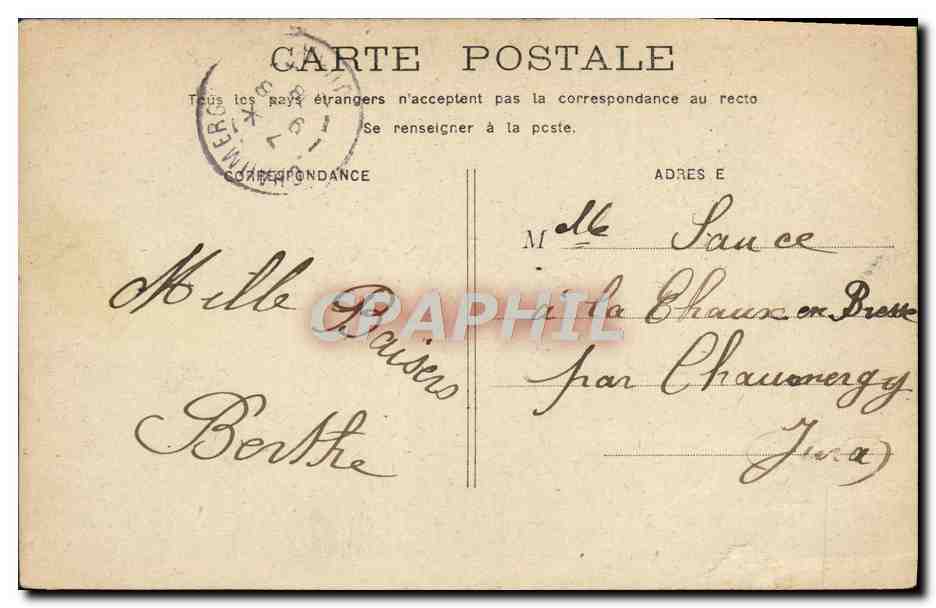 CARTE POSTALE
Tous les pays étrangers n'acceptent pas la correspondance au recto
Se renseigner à la poste.
CORRESPONDANCE
ADRES E
Mlle Sauce
à la Chaux en Bresse
par Chaumergy
Jura)
Mille Baisers
Berthe
CRAPHIL